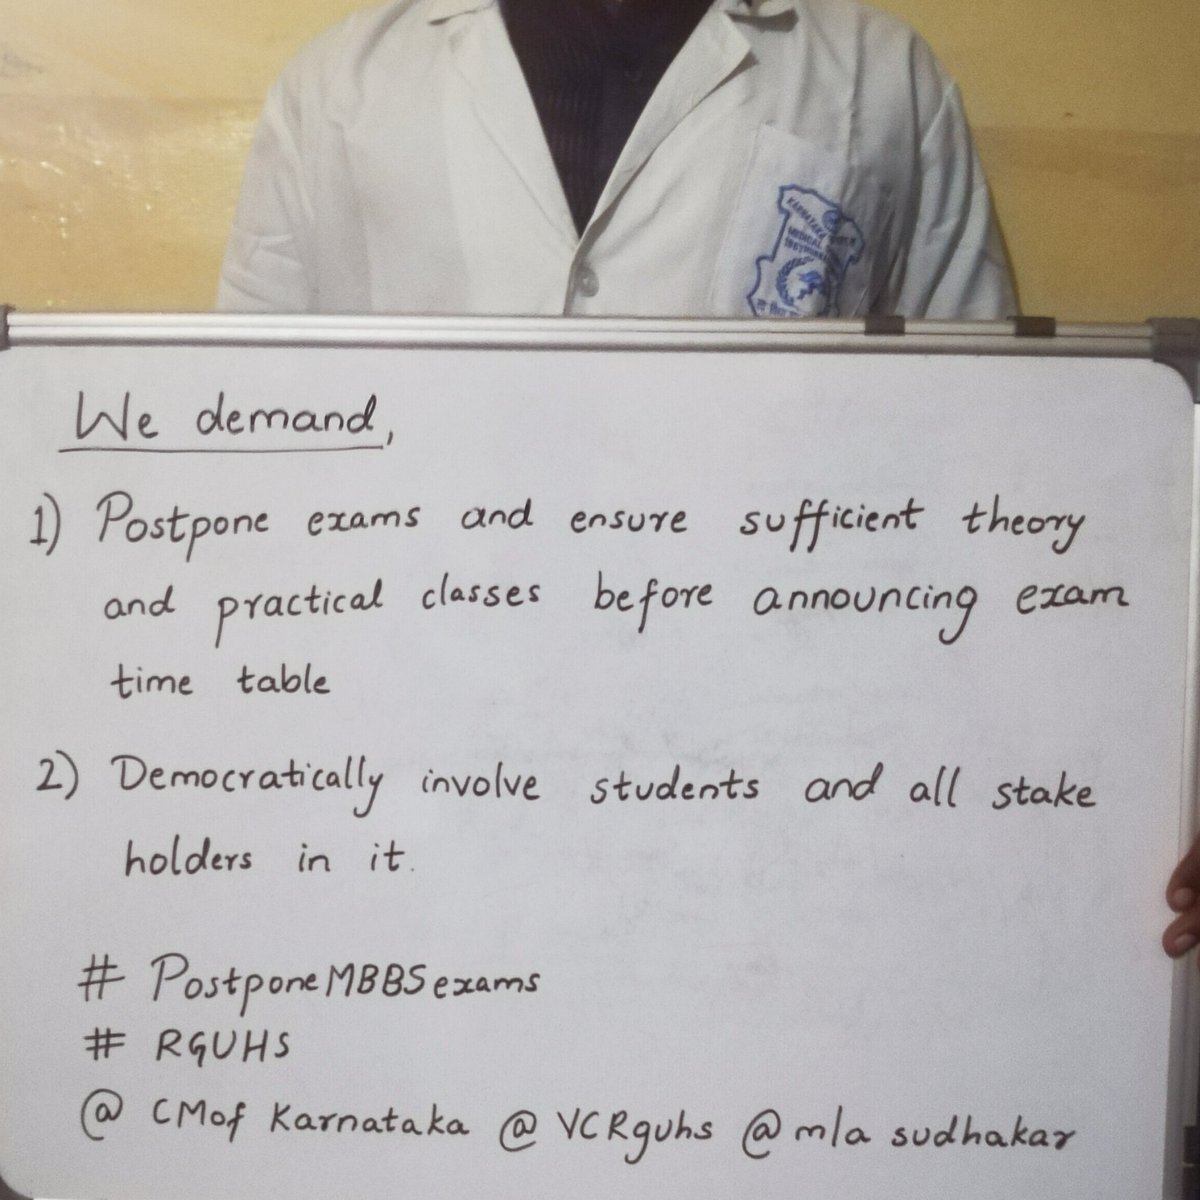 KARNATAKA
MEDICAL
We demand,
1) Postpone exams and ensure sufficient theory
and practical classes before announcing exam
time table
2) Democratically involve students and all stake
holders in it.
# PostponeMBBSexams
# RGUHS
@ CMof Karnataka @ VCRguhs @ mla sudhakar